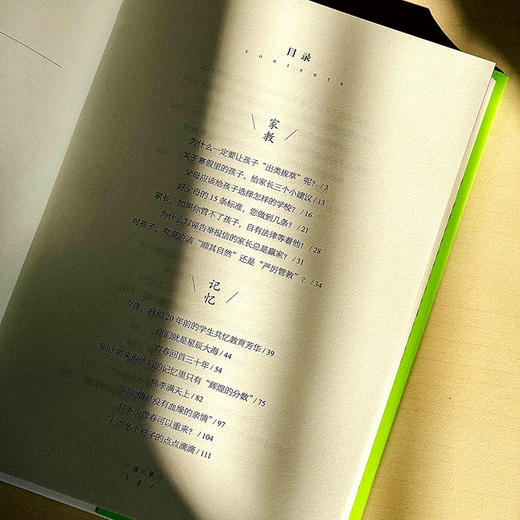 目录
contents
家教
为什么一定要让孩子“出类拔萃”呢? / 3
关于寒假里的孩子，给家长三个小建议 / 13
父母应该给孩子选择怎样的学校? / 16
好父母的15条标准，您做到几条? / 21
家长，如果你管不了孩子，自有法律等着他! / 28
为什么写诬告举报信的家长总是赢家? / 31
对孩子，究竟应该“顺其自然”还是“严厉管教”? / 34
记忆
今夜，我和20年前的学生共忆教育芳华 / 39
你们就是星辰大海 / 44
青春回首三十年 / 54
别让将来 的记忆里只有“辉煌的分数” / 75
桃李满天上 / 82
“ 是没有血缘的亲情” / 97
多少青春可以重来? / 104
七百多个日子的点点滴滴 / 111
1